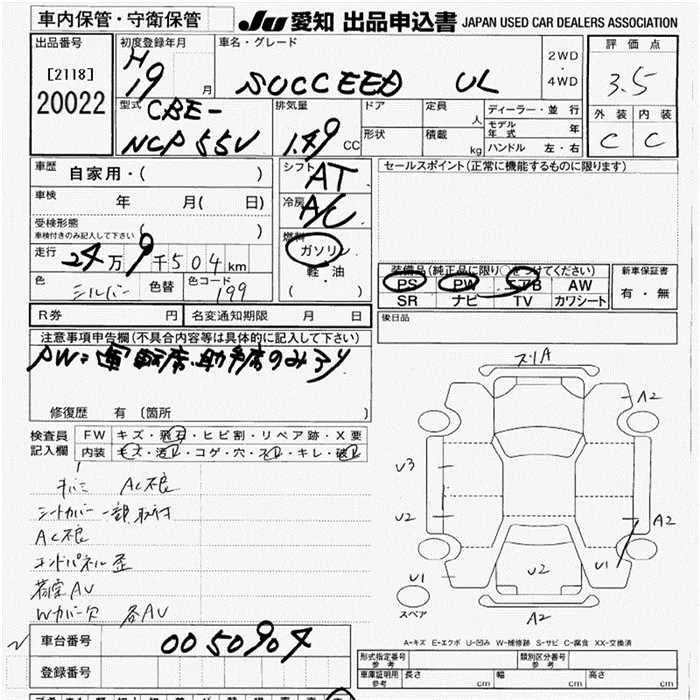 車内保管・守衛保管
JU 愛知 出品申込書 JAPAN USED CAR DEALERS ASSOCIATION
出品番号
[2118]
20022
初度登録年月
H
19 月
車名・グレード
SUCCEED UL
2WD
・
4WD
評価点
3.5
外装 内装
C C
型式 CBE-
NCP55V
排気量
1.49 CC
ドア
形状
定員
人
積載
kg
ディーラー・並行
モデル
年式 年
ハンドル 左・右
車歴 自家用・( )
車検 年 月( 日)
受検形態
車検付きのみ記入して下さい ( )
走行 24万9千504km
色 シルバー 色替 色コード 199
シフト AT
冷房 A/C
燃料
ガソリン
軽・油
( )
セールスポイント(正常に機能するものに限ります)
装備品(純正品に限り○をつけてください)
PS PW エアB AW
SR ナビ TV カワシート
新車保証書
有・無
R券 円 名変通知期限 月 日
後日品
注意事項申告欄(不具合内容等は具体的に記入して下さい)
PW=運転席、助手席のみアリ
修復歴 有 〔箇所 〕
検査員
記入欄
FW キズ・飛石・ヒビ割・リペア跡・X要
内装 キズ・汚れ・コゲ・穴・スレ・キレ・破れ
AC不良
シートカバー一部取付
AC不良
エンドパネル歪
荷室AU
Wカバー欠 各AU
スリA
A2
U3
U2
A2
U1
U2
U1
スペア
A2
A-キズ E-エクボ U-凹み W-補修跡 S-サビ C-腐食 XX-交換済
車台番号 0050904
登録番号
形式指定番号
参考
類別区分番号
参考
車庫証明用
参考
長さ cm 幅 cm 高さ cm